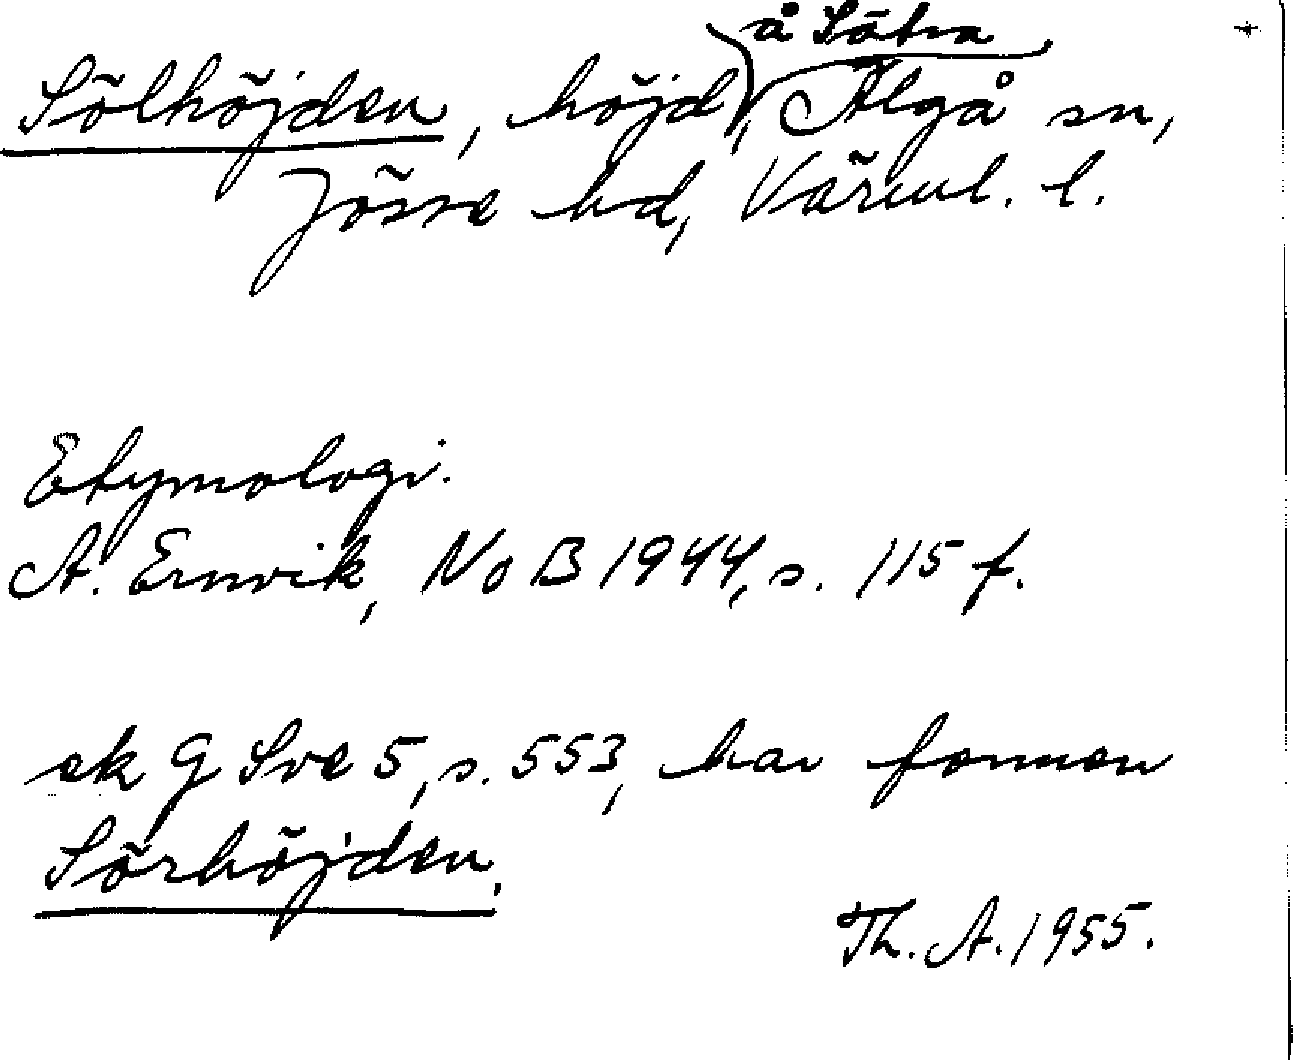 å Sätra
Sölhöjden, höjd, Älgå sn,
Jösse hd, Värml. l.
Etymologi.
A. Ernvik, NoB 1944, s. 115 f.
ek G Sve 5, s. 553, har formen
Sörhöjden.
Th. A. 1955.